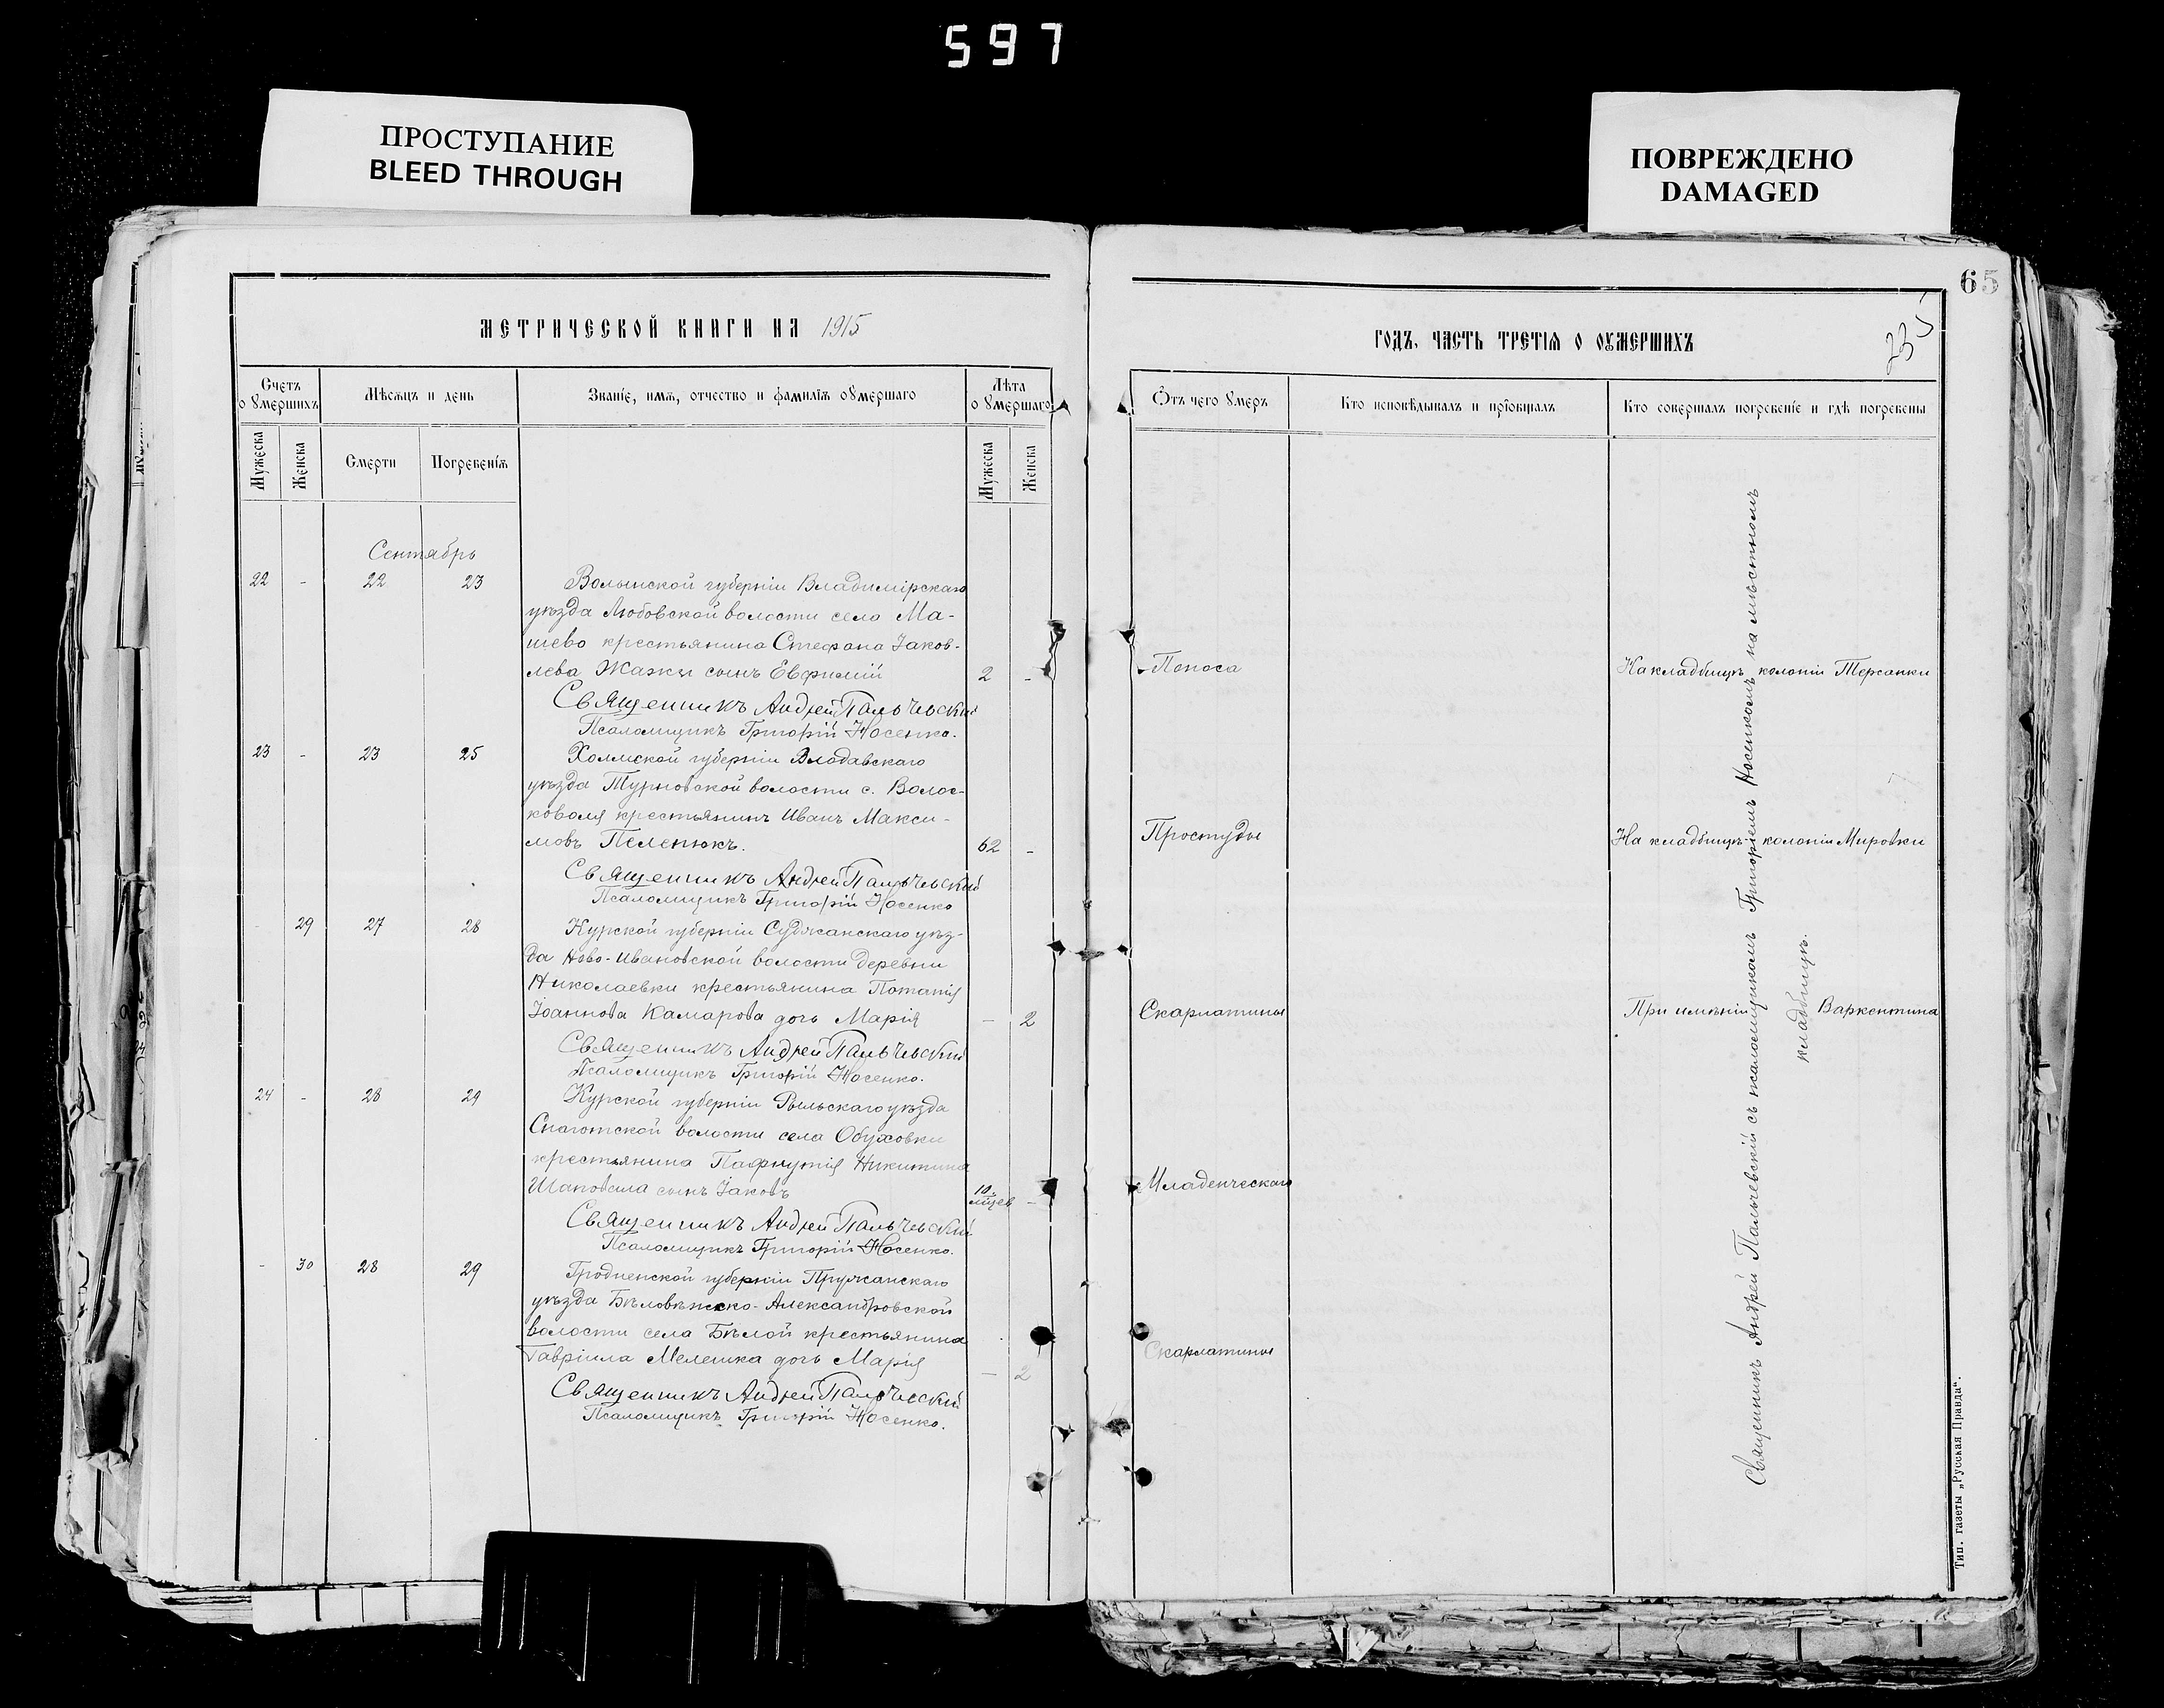 597
ПРОСТУПАНИЕ
BLEED THROUGH
ПОВРЕЖДЕНО
DAMAGED
65
235
МЕТРИЧЕСКОЙ КНИГИ НА 1915
ГОДЪ, ЧАСТЬ ТРЕТІЯ О ОУМЕРШИХЪ
Счетъ о умершихъ
Мѣсяцъ и день
Званіе, имя, отчество и фамилія оумершаго
Лѣта оумершаго
Мужеска
Женска
Смерти
Погребенія
Мужеска
Женска
Отъ чего умеръ
Кто исповѣдывалъ и пріобщалъ
Кто совершалъ погребеніе и гдѣ погребены
Сентябрь
22 - 22 23 Волынской губерніи Владимірскаго
уѣзда Любовской волости село Ма-
шево крестьянина Стефана Іаков-
лева Жажи сынъ Евфимій 2 - Поноса На кладбищѣ колоніи Терсанки
Священникъ Андрей Пальчевскій
Псаломщикъ Григорій Носенко.
23 - 23 25 Холмской губерніи Влодавскаго
уѣзда Турновской волости с. Волос-
коволя крестьянинъ Иванъ Макси-
мовъ Пеленюкъ. 62 - Простуды На кладбищѣ колоніи Мировки
Священникъ Андрей Пальчевскій
Псаломщикъ Григорій Носенко
29 27 28 Курской губерніи Суджанскаго уѣз-
да Ново-Ивановской волости деревни
Николаевки крестьянина Потапія
Іоаннова Камарова дочь Марія - 2 Скарлатины При имѣніи Варкентина
Священникъ Андрей Пальчевскій
Псаломщикъ Григорій Носенко.
24 - 28 29 Курской губерніи Рыльскаго уѣзда
Снаготской волости села Обуховки
крестьянина Пафнутія Никитина
Шаповала сынъ Іаковъ 10 мѣсяц - Младенческаго
Священникъ Андрей Пальчевскій
Псаломщикъ Григорій Носенко.
- 30 28 29 Гродненской губерніи Пружанскаго
уѣзда Бѣловѣжско-Александровской
волости села Бѣлой крестьянина
Гавріила Мелешка дочь Марія - 2 Скарлатины
Священникъ Андрей Пальчевскій
Псаломщикъ Григорій Носенко.
Священникъ Андрей Пальчевскій съ псаломщикомъ Григоріемъ Носенкомъ на мѣстномъ
кладбищѣ.
Тип. газеты „Русская Правда“.